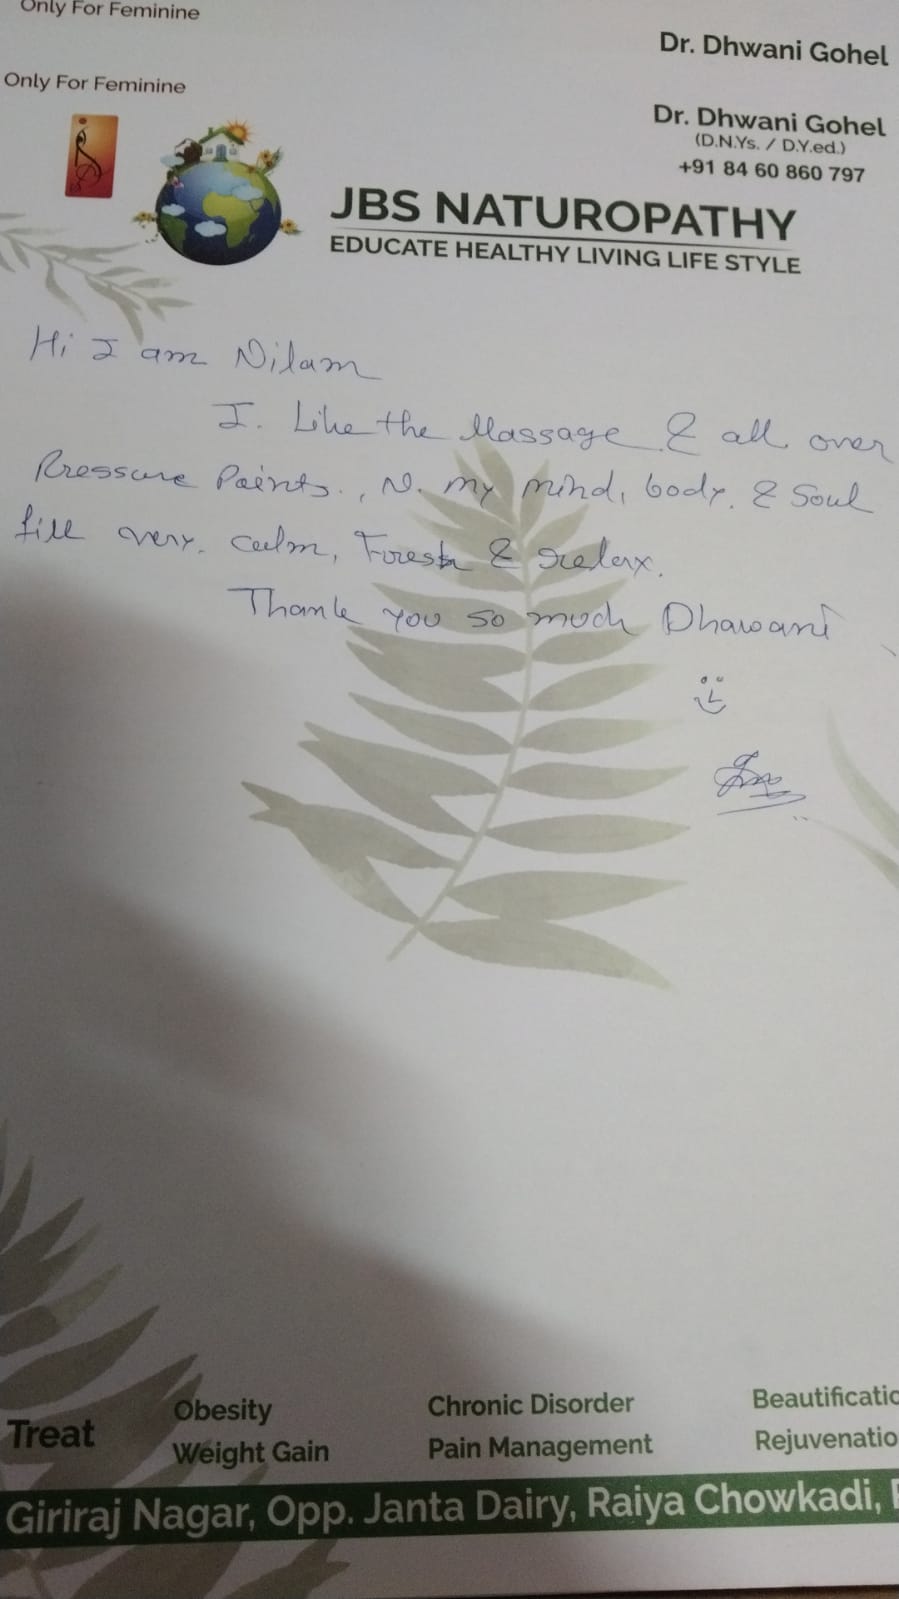 Only For Feminine
Dr. Dhwani Gohel
Only For Feminine
Dr. Dhwani Gohel
(D.N.Ys. / D.Y.ed.)
+91 84 60 860 797
JBS NATUROPATHY
EDUCATE HEALTHY LIVING LIFE STYLE
Hi I am Nilam
I. Like the Massage & all over
Pressure Points., N. my mind, body. & Soul
fill very. calm, Foresh & relax.
Thank you so much Dhawani
Treat
Obesity
Chronic Disorder
Beautificatio
Weight Gain
Pain Management
Rejuvenatio
Giriraj Nagar, Opp. Janta Dairy, Raiya Chowkadi,